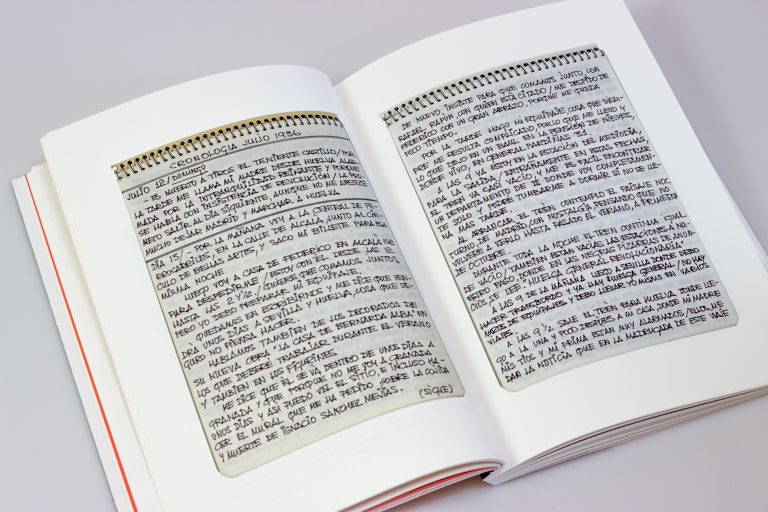 CRONOLOGIA JULIO 1936
JULIO 12/DOMINGO
- ES MUERTO A TIROS EL TENIENTE CASTILLO/POR
LA TARDE ME LLAMA MI MADRE DESDE HUELVA ALAR-
MADA POR LA INTRANQUILIDAD REINANTE Y PORQUE
SE HABLA CON INSISTENCIA DE REVOLUCIÓN/LA PRO-
METO SALIR AL DÍA SIGUIENTE AUNQUE NO ME APETECE
MUCHO DEJAR MADRID Y MARCHAR A HUELVA
DÍA 13/ POR LA MAÑANA VOY A LA CENTRAL DE FE-
RROCARRILES EN LA CALLE DE ALCALA, JUNTO AL CIR-
CULO DE BELLAS ARTES, Y SACO MI BILLETE PARA ESA
MISMA NOCHE
LUEGO VOY A CASA DE FEDERICO EN ALCALA 102
PARA DESPEDIRME/ESTOY CON EL DESDE LAS 12
HASTA LAS 2 Y 1/2/ QUIERE QUE COMAMOS JUNTOS
PERO YO DEBO PREPARAR MI EQUIPAJE
QUEDAMOS EN ESCRIBIRNOS Y ME DICE QUE VEN-
DRÁ UNOS DIAS A SEVILLA Y HUELVA, COSA QUE SE-
GURO NO PIENSA HACER
HABLAMOS TAMBIEN DE LOS DECORADOS DE
SU NUEVA OBRA "LA CASA DE BERNARDA ALBA" EN
LOS QUE DEBERÉ TRABAJAR DURANTE EL VERANO
Y TAMBIEN EN LOS FIGURINES
ME DICE QUE ÉL SE VA DENTRO DE UNOS DIAS A
GRANADA Y QUE PORQUE NO ME VOY A GRANADA
UNOS DIAS Y ASI PUEDO VER EL SITIO, E INCLUSO HA-
CER EL MURAL QUE ME HA PEDIDO SOBRE LA COJIDA
Y MUERTE DE IGNACIO SANCHEZ MEJIAS.
(SIGUE)
DE NUEVO, INSISTE PARA QUE COMAMOS JUNTO CON
RAFAEL RAPUN, CON QUIEN ESTÁ CITADO/ME DESPIDO DE
FEDERICO CON UN GRAN ABRAZO, PORQUE ME QUEDA
POCO TIEMPO.
POR LA TARDE HAGO MI EQUIPAJE, COSA QUE SIEM-
PRE ME RESULTA COMPLICADO, POR LO QUE ME LLEVO Y
LO QUE DEJO EN UN BAUL EN LA PENSIÓN DE NIEVES,
DONDE VIVO/ EN JARDINES 31
A LAS 9 YA ESTOY EN LA ESTACIÓN DEL MEDIODIA,
PARA LA SALIDA/EXTRAÑAMENTE EN ESTAS FECHAS,
EL TREN VA CASI VACÍO, Y ME ES FACIL ENCONTRAR
UN DEPARTAMENTO DE 2ª DONDE VOY COMPLETAMEN-
TE SOLO Y PODRÉ TUMBARME A DORMIR SI NO SE LLE-
NA MAS TARDE
AL ARRANCAR EL TREN CONTEMPLO EL PAISAJE NOC-
TURNO DE MADRID, CON NOSTALGIA PENSANDO QUE NO
VOLVERÉ A VERLO HASTA PASADO EL VERANO A PRIMEROS
DE OCTUBRE
DURANTE TODA LA NOCHE EL TREN CONTINUA IGUAL
DE VACÍO/TAMBIEN ESTAN VACÍAS LAS ESTACIONES A NU-
ESTRO PASO/ EN LAS NEGRAS PIZARRAS DE ANUN-
CIOS SE LEE "HUELGA GENERAL REVOLUCIONARIA"
A LAS 9 DE LA MAÑANA LLEGO A SEVILLA DONDE DEBO
HACER TRANSBORDO Y YA HAY HUELGA GENERAL/NO HAY
MOZOS DE EQUIPAJES Y DEBO LLEVAR YO MISMO MIS VARIOS
VIAJES
A LAS 9 1/2 SALE EL TREN PARA HUELVA DONDE LLE-
GO A LA UNA Y POCO DESPUES A MI CASA DONDE MI MADRE
MIS TIOS Y MI PRIMA ESTAN MUY ALARMADOS/ELLOS ME
DAN LA NOTICIA QUE EN LA MADRUGADA DE ESTE VIAJE